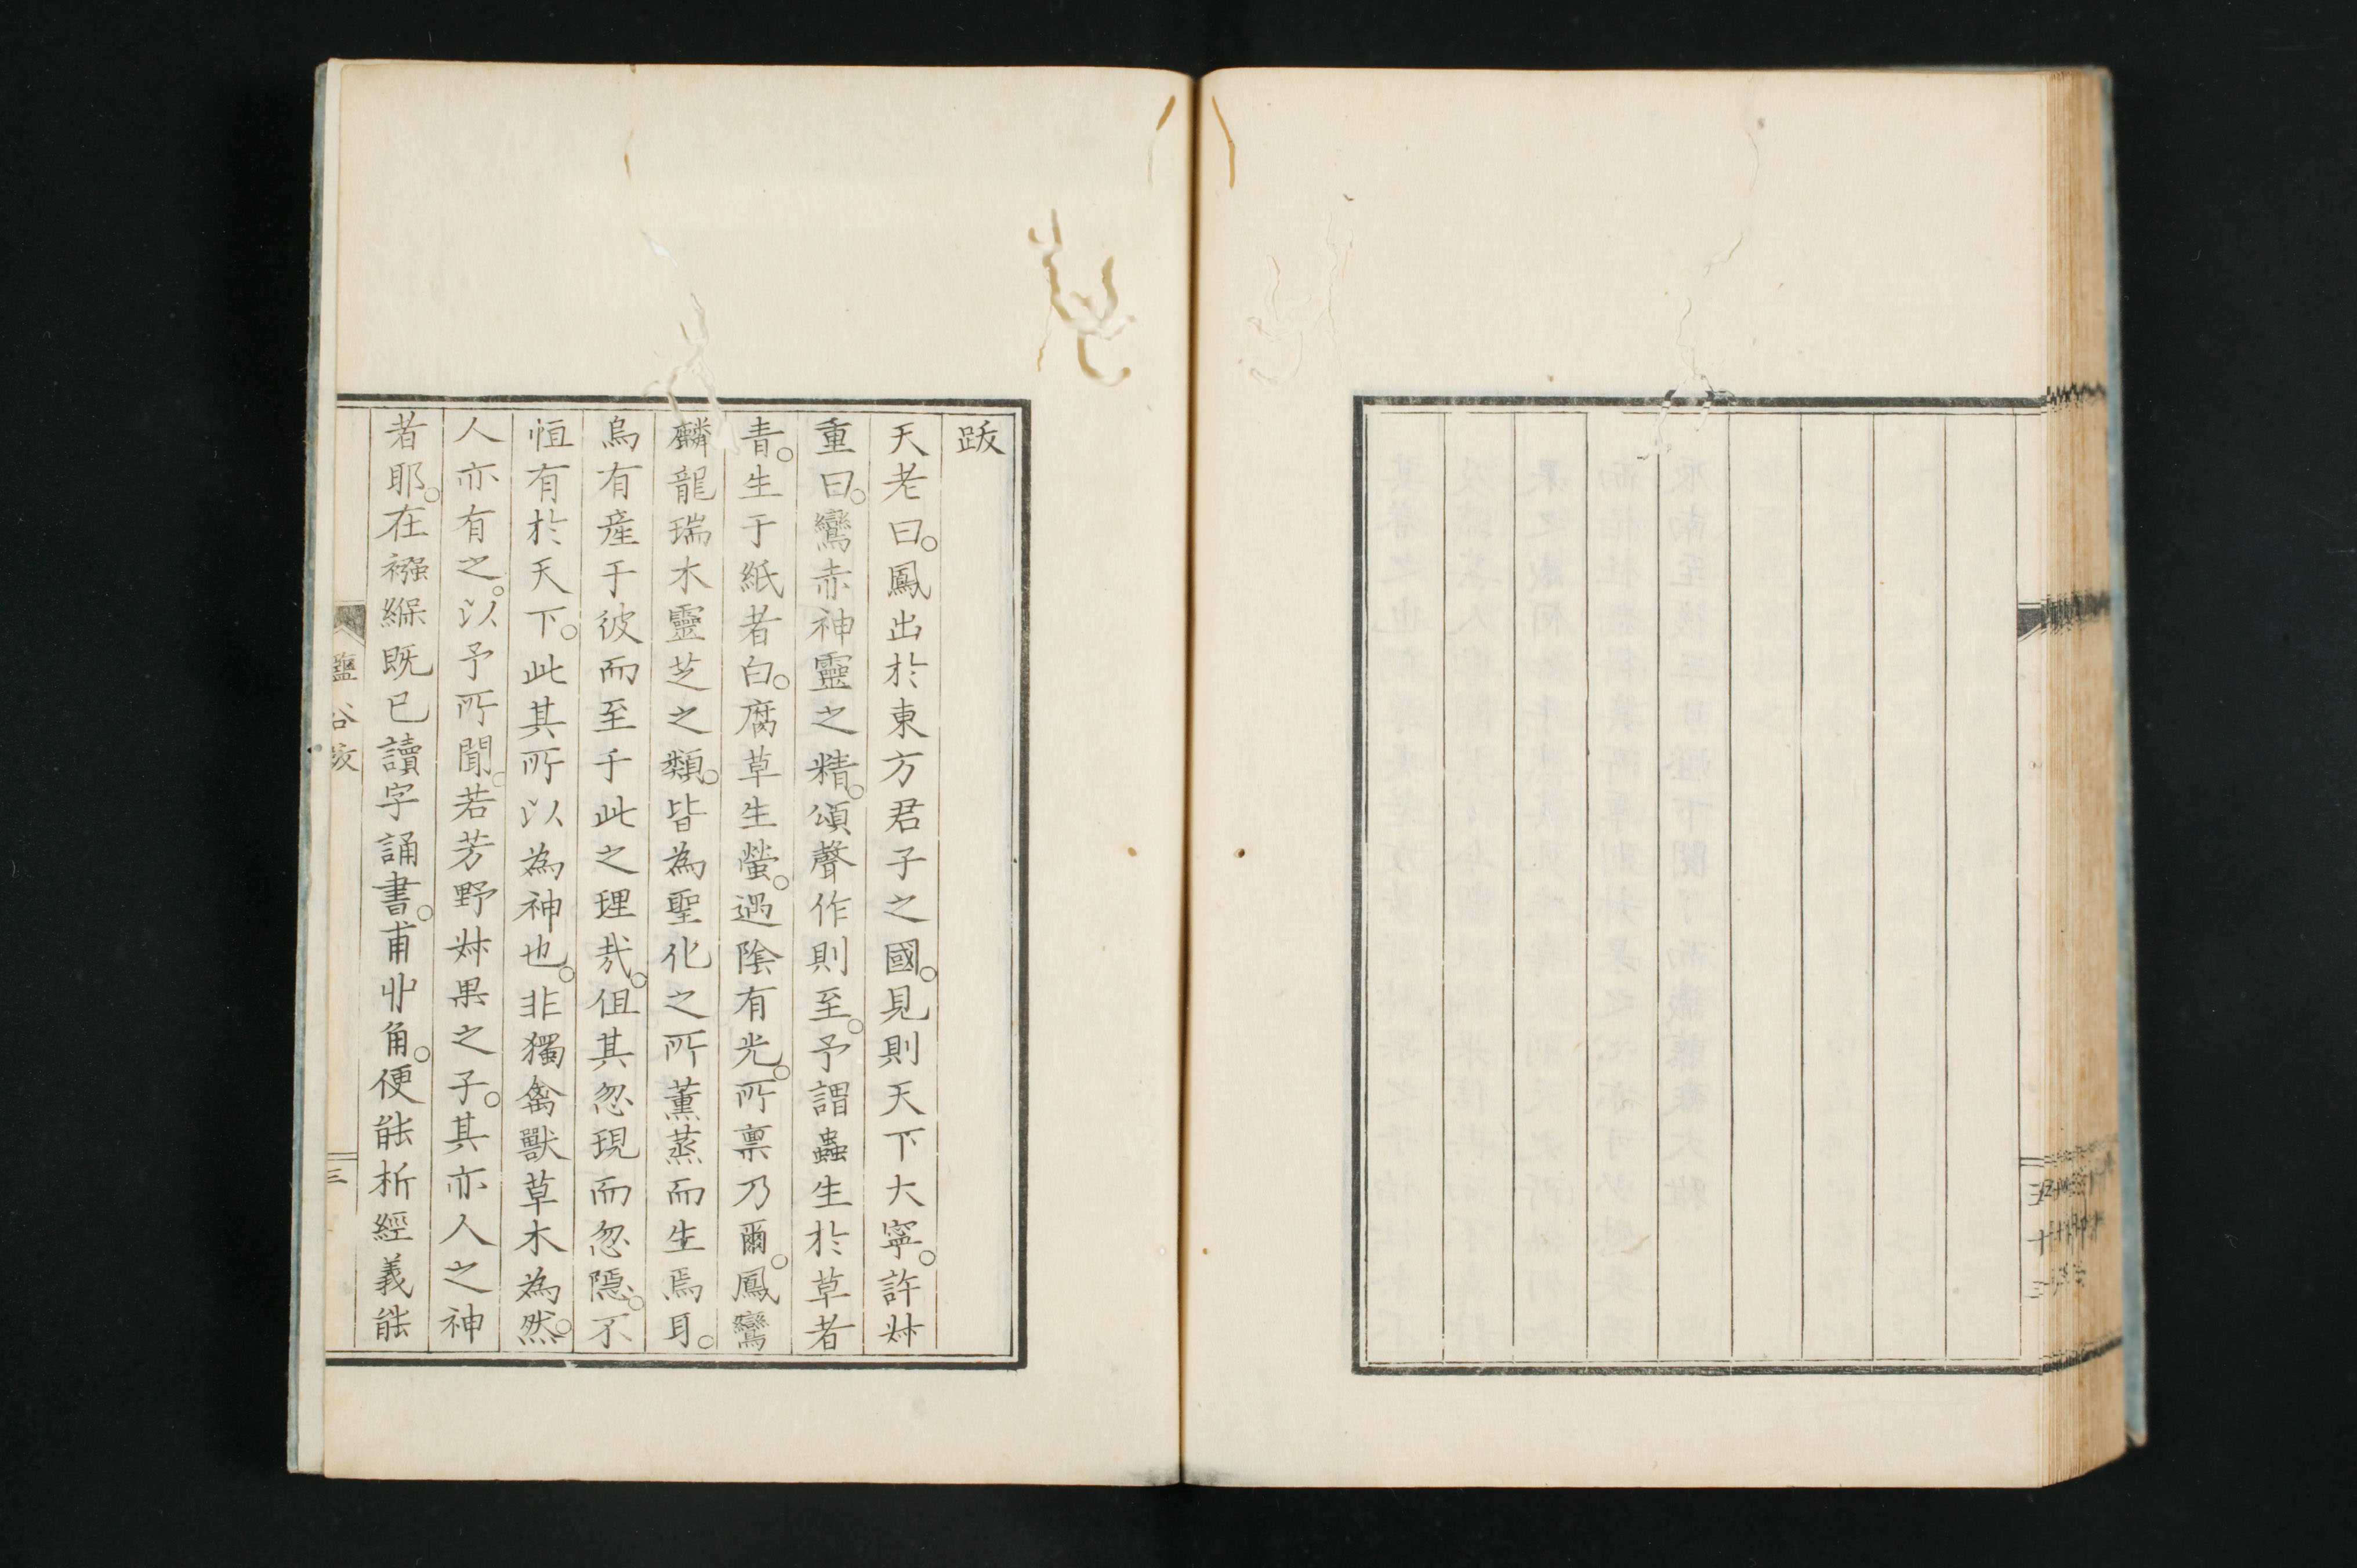 跋
天老曰。鳳出於東方君子之國。見則天下大寧。許叔
重曰。鸞赤神靈之精。頌聲作則至。予謂蟲生於草者
青。生于紙者白。腐草生螢。遇陰有光。所稟乃爾。鳳鸞
麟龍瑞木靈芝之類。皆為聖化之所薰蒸而生焉耳。
烏有產于彼而至于此之理哉。但其忽現而忽隱。不
恒有於天下。此其所以為神也。非獨禽獸草木為然。
人亦有之。以予所聞。若芳野叔果之子。其亦人之神
者耶。在襁緥既已讀字誦書。甫丱角。便能析經義能
三